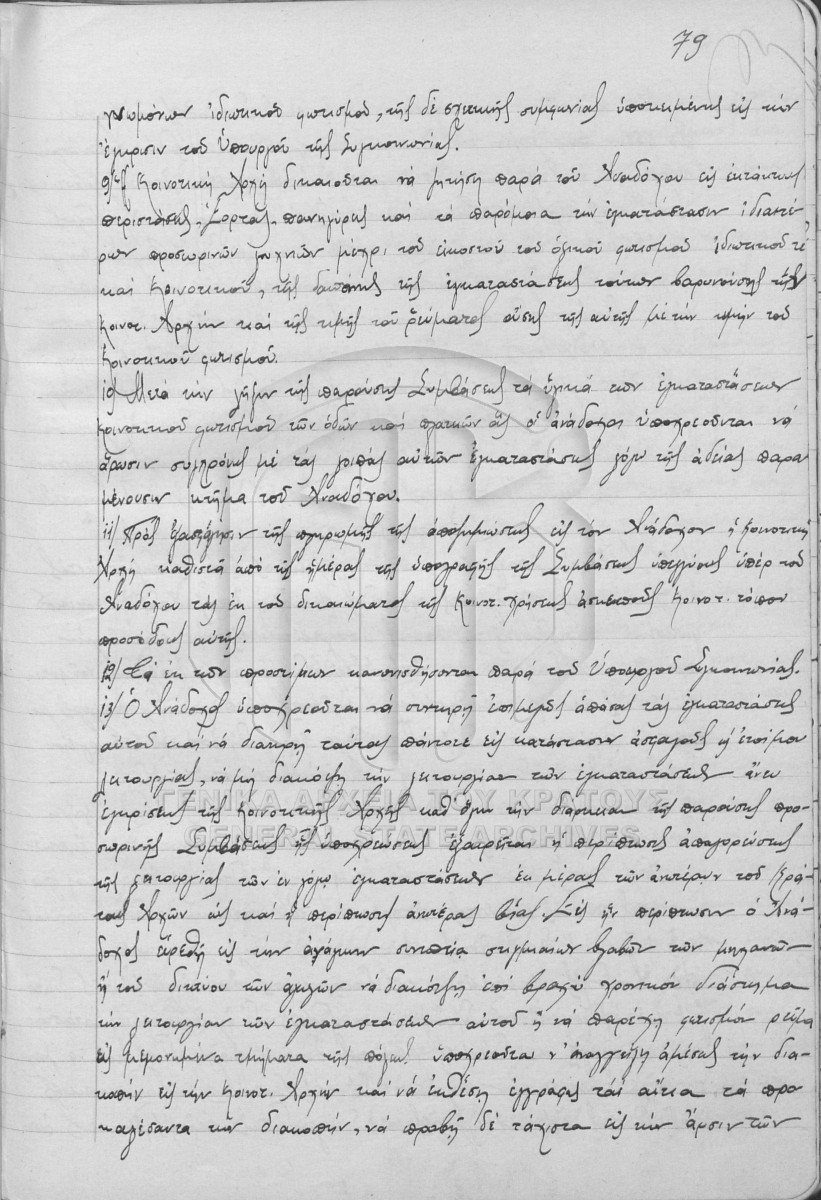 79
γνωμόνων ἰδιωτικοῦ φωτισμοῦ, τῆς δὲ σχετικῆς συμφωνίας ὑποκειμένης εἰς τὴν
ἔγκρισιν τοῦ Ὑπουργοῦ τῆς Συγκοινωνίας.
9) Ἡ Κοινοτικὴ Ἀρχὴ δικαιοῦται νὰ ζητήσῃ παρὰ τοῦ Ἀναδόχου εἰς ἐκτάκτους
περιστάσεις, ἑορτάς, πανηγύρεις καὶ τὰ παρόμοια τὴν ἐγκατάστασιν ἰδιαιτέ-
ρων προσωρινῶν λυχνιῶν μέχρι τοῦ εἰκοστοῦ τοῦ ὁλικοῦ φωτισμοῦ ἰδιωτικοῦ τε
καὶ Κοινοτικοῦ, τῆς δαπάνης τῆς ἐγκαταστάσεως τούτων βαρυνούσης τὴν
Κοινοτ. Ἀρχὴν καὶ τῆς τιμῆς τοῦ ῥεύματος οὔσης τῆς αὐτῆς μὲ τὴν τιμὴν τοῦ
Κοινοτικοῦ φωτισμοῦ.
10) Μετὰ τὴν λῆξιν τῆς παρούσης Συμβάσεως τὰ ὑλικὰ τῶν ἐγκαταστάσεων
Κοινοτικοῦ φωτισμοῦ τῶν ὁδῶν καὶ πλατειῶν ἃς οἱ ἀνάδοχοι ὑποχρεοῦνται νὰ
ἄρωσιν συγχρόνως μὲ τὰς λοιπὰς αὐτῶν ἐγκαταστάσεις λόγῳ τῆς ἀδείας παρα
μένουσιν κτῆμα τοῦ Ἀναδόχου.
11) Πρὸς ἐξασφάλισιν τῆς πληρωμῆς τῆς ἀποζημιώσεως εἰς τὸν Ἀνάδοχον ἡ Κοινοτικὴ
Ἀρχὴ καθιστᾷ ἀπὸ τῆς ἡμέρας τῆς ὑπογραφῆς τῆς Συμβάσεως ὑπεγγύους ὑπὲρ τοῦ
Ἀναδόχου τὰς ἐκ τοῦ δικαιώματος τῆς Κοινοτ. χρήσεως ἀσκεποῦς Κοινοτ. τόπου
προσόδους αὐτῆς.
12) Τὰ ἐκ τῶν προστίμων κανονισθήσονται παρὰ τοῦ Ὑπουργοῦ Συγκοινωνίας.
13) Ὁ Ἀνάδοχος ὑποχρεοῦται νὰ συντηρῇ ἐπιμελῶς ἁπάσας τὰς ἐγκαταστάσεις
αὐτοῦ καὶ νὰ διατηρῇ ταύτας πάντοτε εἰς κατάστασιν ἀσφαλοῦς ἢ ἑτοίμου
λειτουργίας, νὰ μὴ διακόπτῃ τὴν λειτουργίαν τῶν ἐγκαταστάσεων ἄνευ
ἐγκρίσεως τῆς Κοινοτικῆς Ἀρχῆς καθ' ὅλην τὴν διάρκειαν τῆς παρούσης προ-
σωρινῆς Συμβάσεως ἧς ὑποχρεώσεως ἐξαιρεῖται ἡ περίπτωσις ἀπαγορεύσεως
τῆς λειτουργίας τῶν ἐν λόγῳ ἐγκαταστάσεων ἐκ μέρους τῶν ἀνωτέρων τοῦ Κρά-
τους Ἀρχῶν ὡς καὶ ἡ περίπτωσις ἀνωτέρας βίας. Εἰς ἣν περίπτωσιν ὁ Ἀνά-
δοχος εὑρεθῇ εἰς τὴν ἀνάγκην συνεπείᾳ στιγμιαίων βλαβῶν τῶν μηχανῶν
ἢ τοῦ δικτύου τῶν ἀγωγῶν νὰ διακόψῃ ἐπὶ βραχὺ χρονικὸν διάστημα
τὴν λειτουργίαν τῶν ἐγκαταστάσεων αὐτοῦ ἢ νὰ παρέχῃ φωτισμὸν ρεῦμα
εἰς μεμονωμένα τμήματα τῆς πόλεως ὑποχρεοῦται ν' ἀναγγείλῃ ἀμέσως τὴν δια-
κοπὴν εἰς τὴν Κοινοτ. Ἀρχὴν καὶ νὰ ἐκθέσῃ ἐγγράφως τὰ αἴτια τὰ προ-
καλέσαντα τὴν διακοπήν, νὰ προβῇ δὲ τάχιστα εἰς τὴν ἄρσιν τῶν
ΓΕΝΙΚΑ ΑΡΧΕΙΑ ΤΟΥ ΚΡΑΤΟΥΣ
GENERAL STATE ARCHIVES